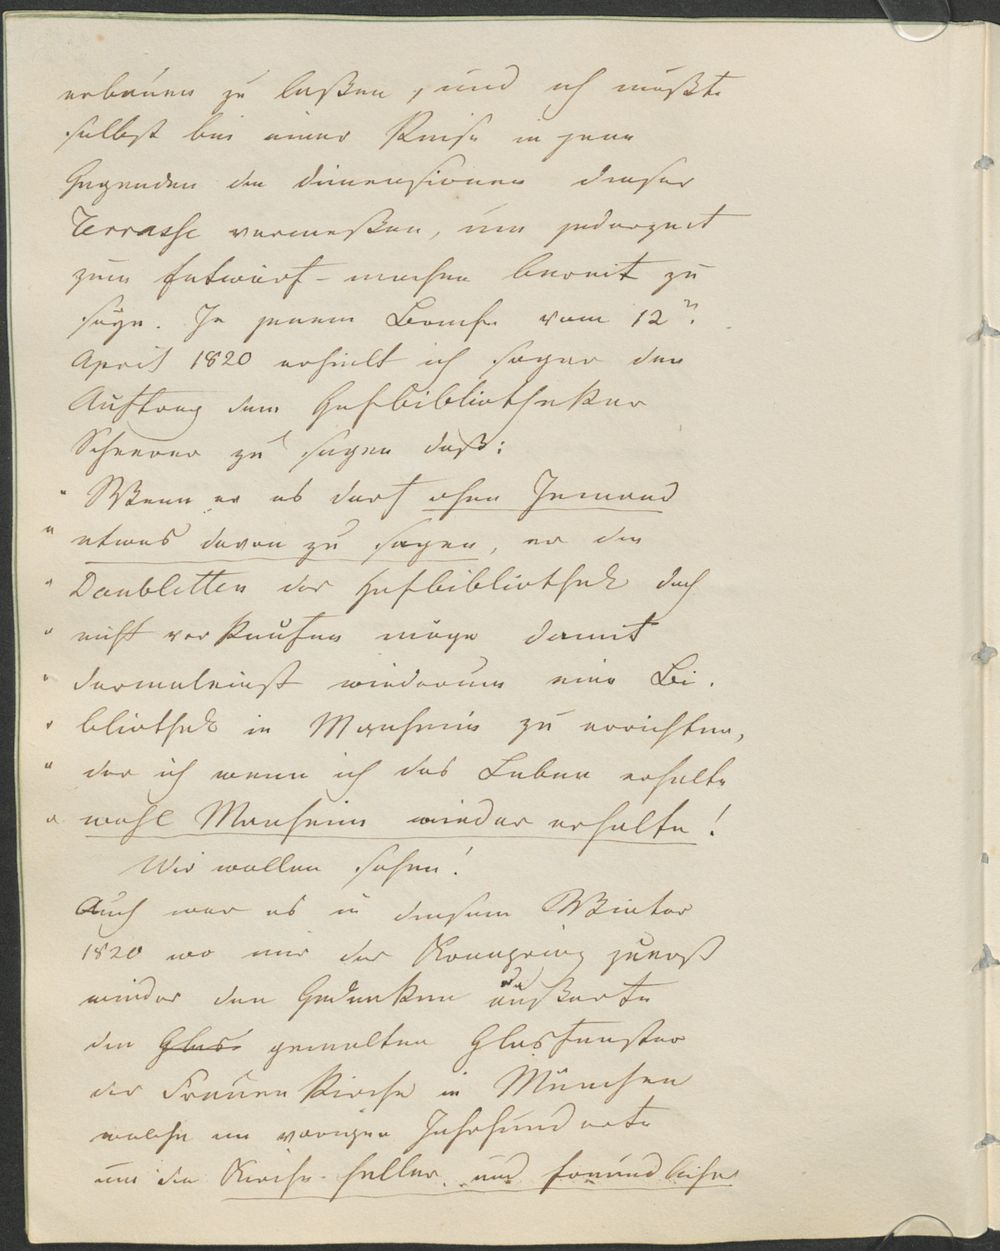 erbauen zu laßen, und ich mußte
selbst bei einer Reise in jene
Gegenden die Dimensionen dieser
Terrasse vermeßen, um jederzeit
zum Entwurf-machen bereit zu
seyn. In jenem Briefe vom 12n.
April 1820 erhielt ich sogar den
Auftrag dem Hofbibliothekar
Scheerer zu sagen daß:
" Wenn er es darf ohne Jemand
" etwas davon zu sagen, er die
" Doubletten der Hofbibliothek doch
" nicht verkaufen möge damit
" dermaleinst wiederum eine Bi-
" bliothek in Manheim zu errichten,
" der ich wenn ich das Leben erhalte
" wohl Manheim wieder erhalte!
Wir wollen sehen!
Auch war es in diesem Winter
1820 wo mir der Kronprinz zuerst
wieder den Gedanken äußerte
die Glas gemalten Glasfenster
der Frauenkirche in München
welche im vorigen Jahrhunderte
um die Kirche heller und freundlicher